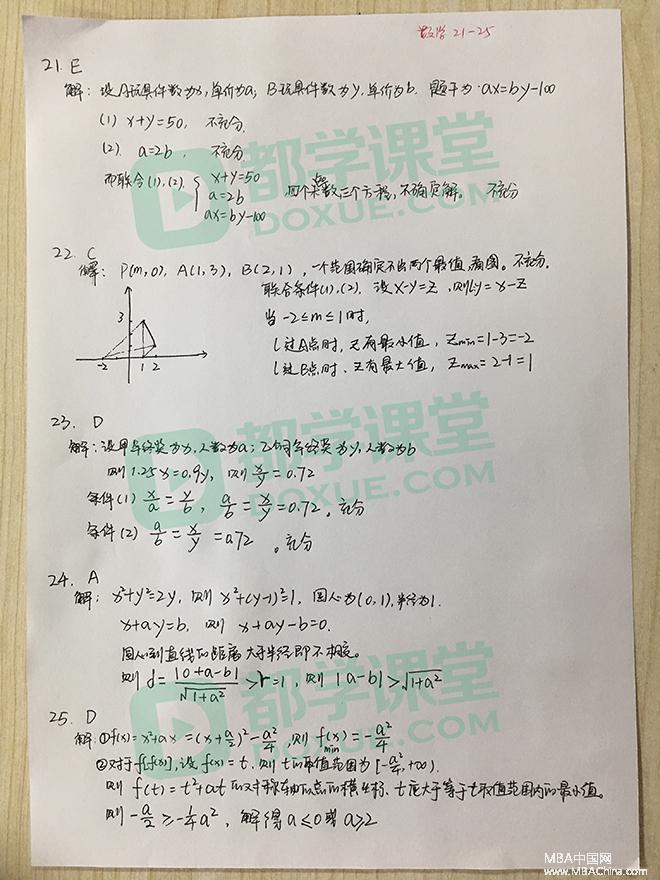 数学 21-25
21. E
解: 设A玩具件数为x, 单价为a; B玩具件数为y, 单价为b. 题干为: ax=by-100
(1) x+y=50, 不充分.
(2). a=2b, 不充分
而联合(1),(2). { x+y=50
a=2b
ax=by-100
四个未知数三个方程, 不确定解。 不充分
22. C
解: P(m,0), A(1,3), B(2,1), 一个范围确定不出两个最值, 看图。不充分.
联合条件(1),(2). 设x-y=z, 则l:y=x-z
当-2≤m≤1时,
l过A点时, z有最小值, Zmin=1-3=-2
l过B点时, z有最大值, Zmax=2-1=1
3
-2 1 2
23. D
解: 设甲年终奖为x, 人数为a; 乙公司年终奖为y, 人数为b
则1.25x=0.9y, 则 x/y=0.72
条件(1) x/a=y/b, a/b=x/y=0.72。充分
条件(2) a/b=x/y=0.72。充分
24. A
解: x²+y²=2y, 则 x²+(y-1)²=1, 圆心为(0,1), 半径为1.
x+ay=b, 则 x+ay-b=0.
圆心到直线的距离大于半径即不相交。
则 d=|0+a-b|/√(1+a²)>r=1, 则 |a-b|>√(1+a²)
25. D
解: ①f(x)=x²+ax=(x+a/2)²-a²/4, 则 f(x)min=-a²/4
②对于f[f(x)], 设f(x)=t, 则t的取值范围为[-a²/4,+∞).
则 f(t)=t²+at 的对称轴顶点的横坐标, t应大于等于t取值范围内的最小值。
则 -a/2≥-1/4a², 解得a≤0或a≥2
都学课堂
DOXUE.COM
都学课堂
DOXUE.COM
都学课堂
DOXUE.COM
MBA中国网
www.MBAChina.com